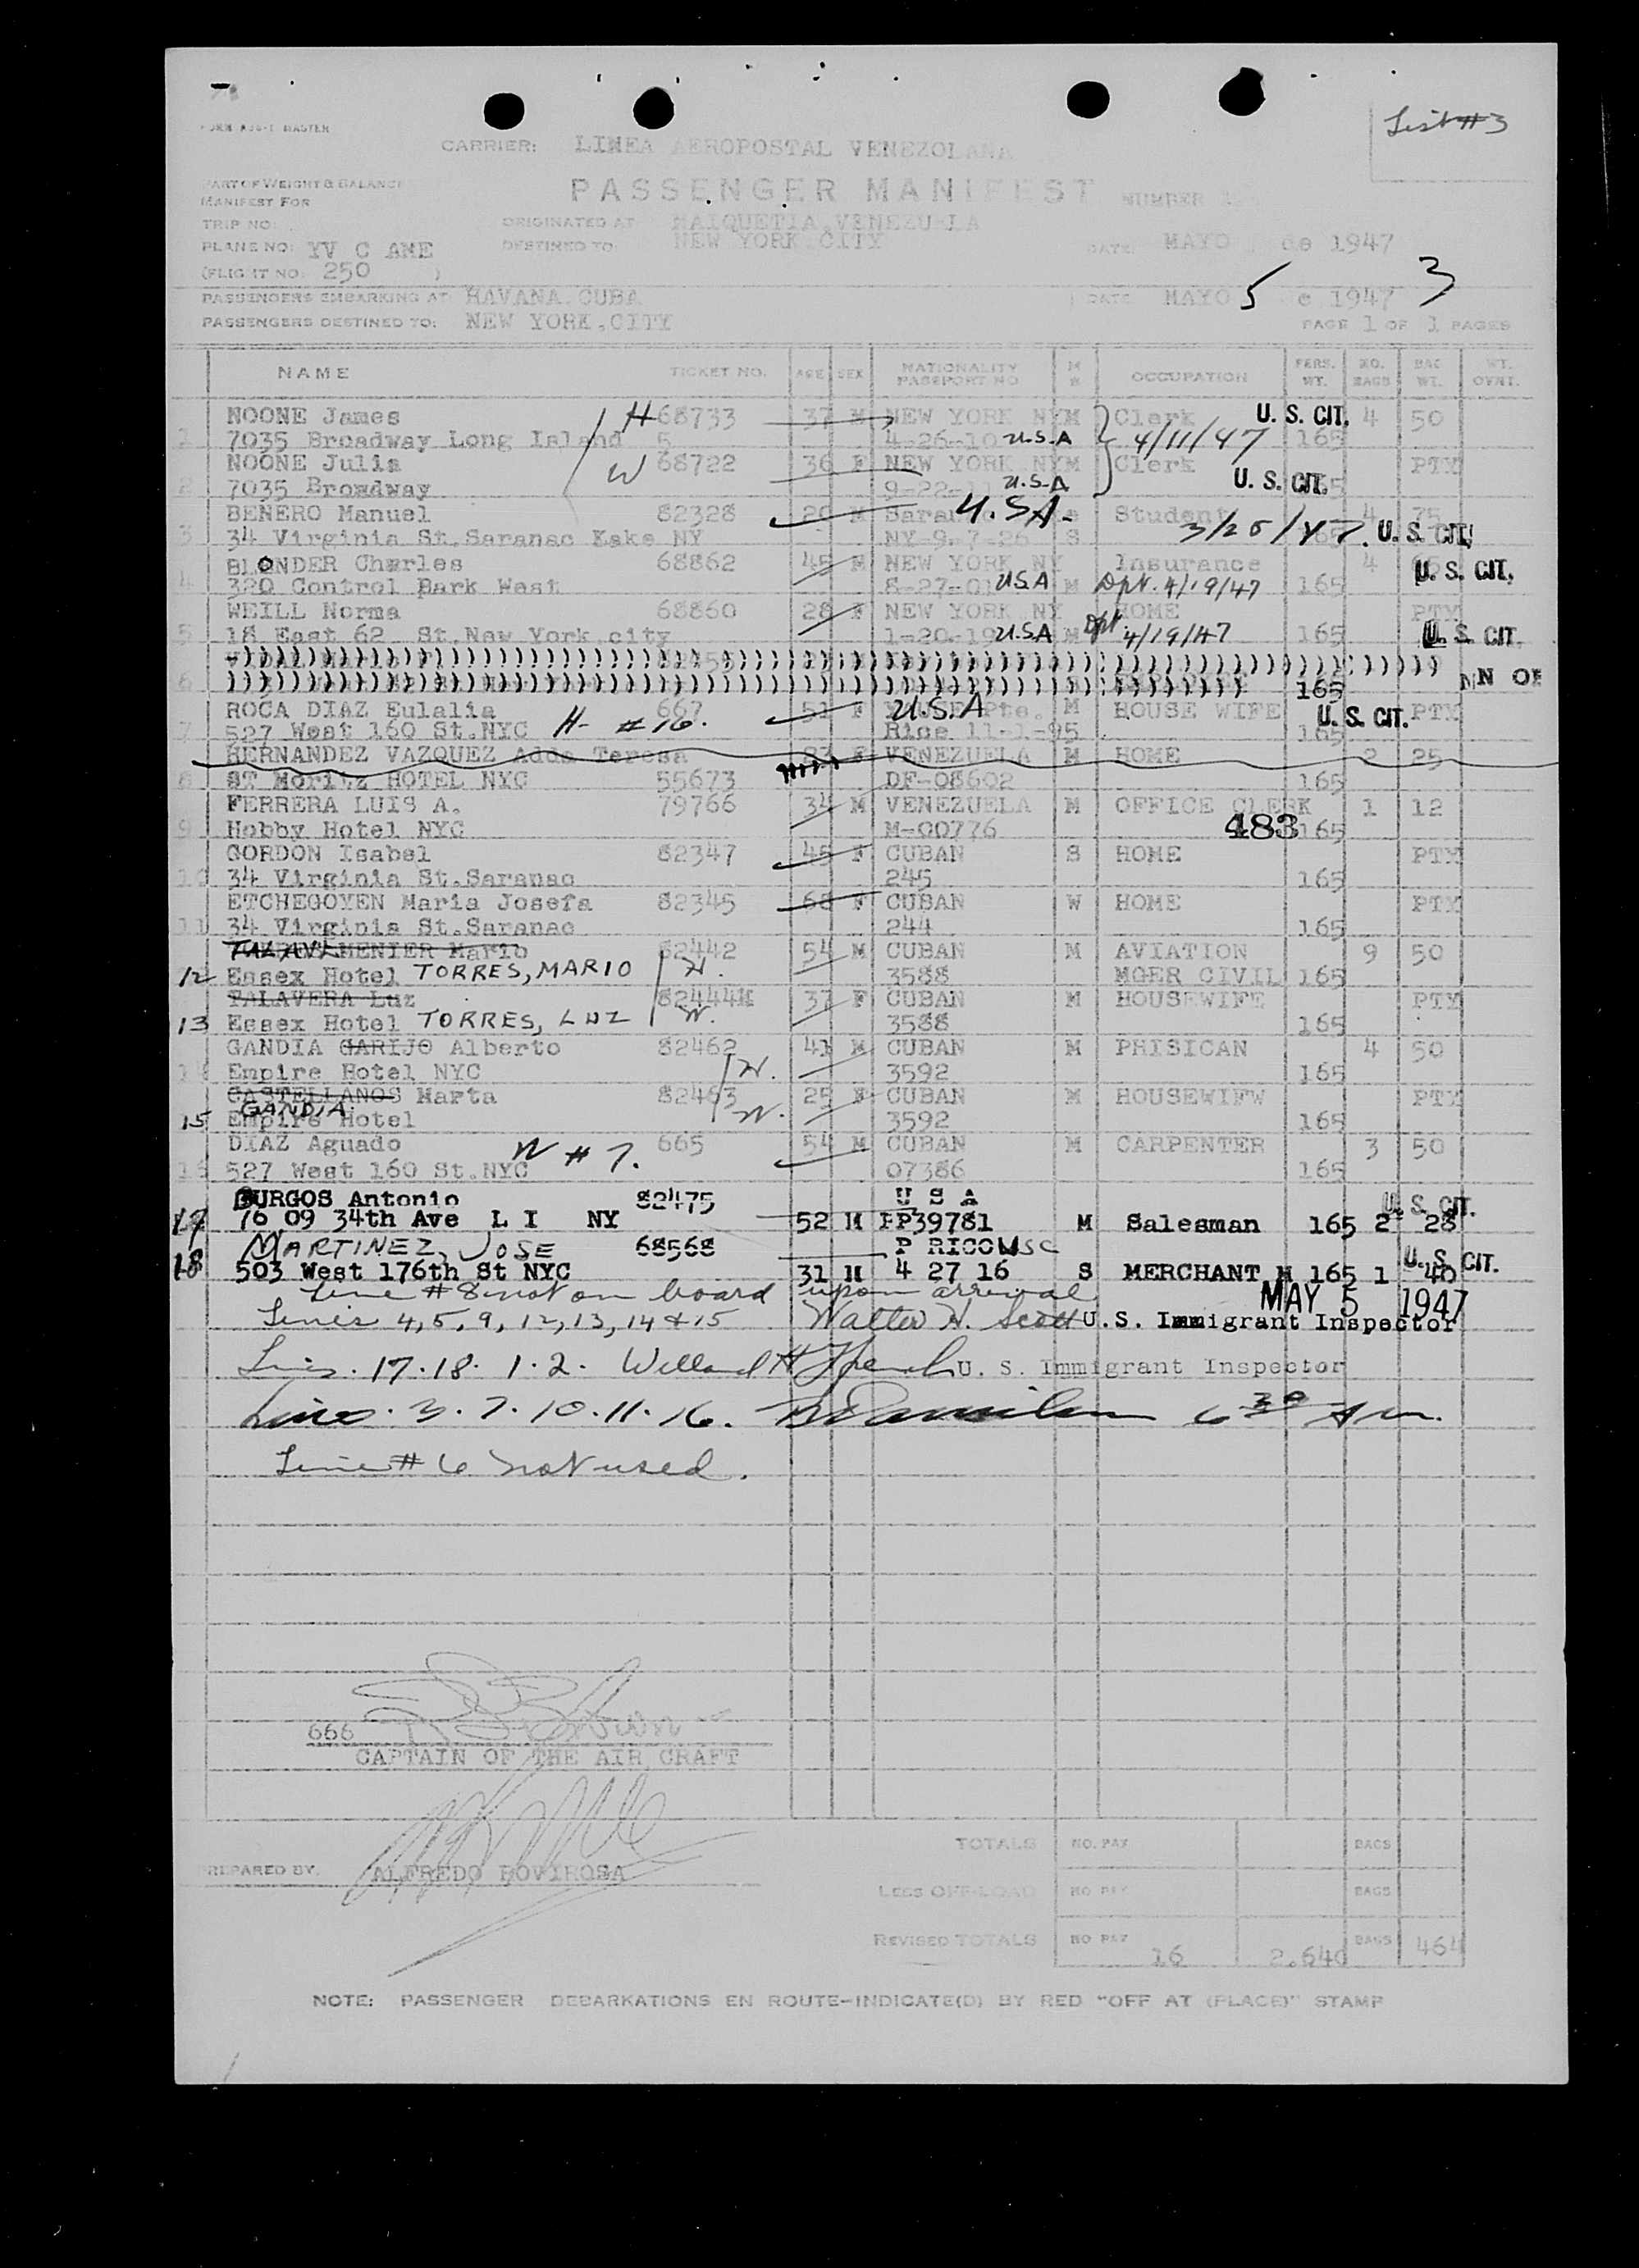 List #3
CARRIER: LINEA AEROPOSTAL VENEZOLANA
PART OF WEIGHT & BALANCE
MANIFEST FOR
PASSENGER MANIFEST NUMBER
TRIP NO: ORIGINATED AT MAIQUETIA, VENEZUELA
PLANE NO: YV C AME DESTINED TO: NEW YORK CITY DATE: MAYO de 1947
(FLIGHT NO. 250 )
PASSENGERS EMBARKING AT: HAVANA CUBA DATE MAYO 5 e 1947 3
PASSENGERS DESTINED TO: NEW YORK, CITY PAGE 1 OF 1 PAGES
NAME TICKET NO. AGE SEX NATIONALITY PASSPORT NO M OCCUPATION PERS. WT. NO. BAGS BAG WT. WT. OVNT.
NOONE James H 68733 37 M NEW YORK NY M Clerk U. S. CIT. 4 50
1 7035 Broadway Long Island 5 4-26-10 U.S.A 4/11/47 165
NOONE Julia W 68722 36 F NEW YORK NY M Clerk PTY
2 7035 Broadway 9-22-11 U.S.A U. S. CIT.
BENERO Manuel 82328 20 M U.S.A. Student 4 75
3 34 Virginia St. Saranac Lake NY NY-9-7-26 S 3/20/47. U. S. CIT.
BLONDER Charles 68862 45 M NEW YORK NY Insurance 4
4 320 Control Park West 8-27-01 USA M Dpt. 4/19/47 165 U. S. CIT.
WEILL Norma 68860 28 F NEW YORK NY HOME PTY
5 18 East 62 St. New York city 1-20-19 U.S.A M Dpt 4/19/47 165 U. S. CIT.
6 165
ROCA DIAZ Eulalia 667 51 F U.S.A Pto. M HOUSE WIFE U. S. CIT. PTY
7 527 West 160 St. NYC H- #16. Rico 11-1-95 165
HERNANDEZ VAZQUEZ Adda Teresa 23 F VENEZUELA M HOME 2 25
8 ST Moritz HOTEL NYC 55673 DF-08602 165
FERRERA LUIS A. 79766 34 M VENEZUELA M OFFICE CLERK 1 12
9 Hobby Hotel NYC M-00776 483 165
GORDON Isabel 82347 45 F CUBAN S HOME PTY
10 34 Virginia St. Saranac 245 165
ETCHEGOYEN Maria Josefa 82345 68 F CUBAN W HOME PTY
11 34 Virginia St. Saranac 244 165
MENIER Mario 82442 54 M CUBAN M AVIATION 9 50
12 Essex Hotel TORRES, MARIO H. 3588 MGER CIVIL 165
TALAVERA Luz 82444M 37 F CUBAN M HOUSEWIFE PTY
13 Essex Hotel TORRES, LUZ W. 3588 165
GANDIA GARIJO Alberto 82462 41 M CUBAN M PHISICAN 4 50
14 Empire Hotel NYC H. 3592 165
CASTELLANOS Marta 82463 25 F CUBAN M HOUSEWIFW PTY
GANDIA
15 Empire Hotel W. 3592 165
DIAZ Aguado 665 54 M CUBAN M CARPENTER 3 50
16 527 West 160 St. NYC W #7. 07386 165
BURGOS Antonio 82475 U S A U. S. CIT.
17 76 09 34th Ave L I NY 52 M PP39781 M Salesman 165 2 28
MARTINEZ, JOSE 68568 P RICO USC U. S. CIT.
18 503 West 176th St NYC 31 M 4 27 16 S MERCHANT M 165 1 40
Line #8 not on board upon arrival MAY 5 1947
Lines 4, 5, 9, 12, 13, 14 & 15 Walter H. Scott U.S. Immigrant Inspector
Lines. 17. 18. 1. 2. U. S. Immigrant Inspector
Lines. 3. 7. 10. 11. 16. 6 30 Am.
Line #6 not used.
666
CAPTAIN OF THE AIR CRAFT
PREPARED BY. ALFREDO ROVIROSA
TOTALS NO. PAY BAGS
LESS OFF-LOAD NO PAY BAGS
REVISED TOTALS NO PAY 16 2.640 BAGS 464
NOTE: PASSENGER DEBARKATIONS EN ROUTE-INDICATE(D) BY RED "OFF AT (PLACE)" STAMP